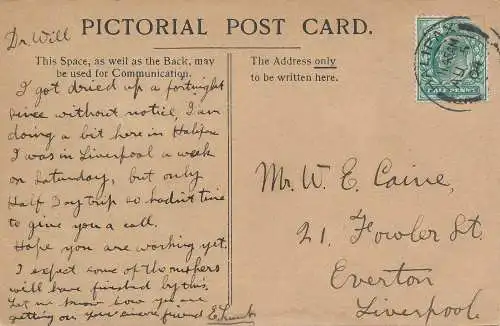 Dr Will
PICTORIAL POST CARD.
This Space, as well as the Back, may
be used for Communication.
I got dried up a fortnight
since without notice, I am
doing a bit here in Halifax
I was in Liverpool a week
on Saturday, but only
Half Day trip so hadnt time
to give you a call.
Hope you are working yet.
I expect some of the
will have finished by this.
Let me know how you are
getting on your sincere friend E
The Address only
to be written here.
HALIFAX
HALF PENNY
Mr. W. E. Caine,
21. Fowler St.
Everton
Liverpool.